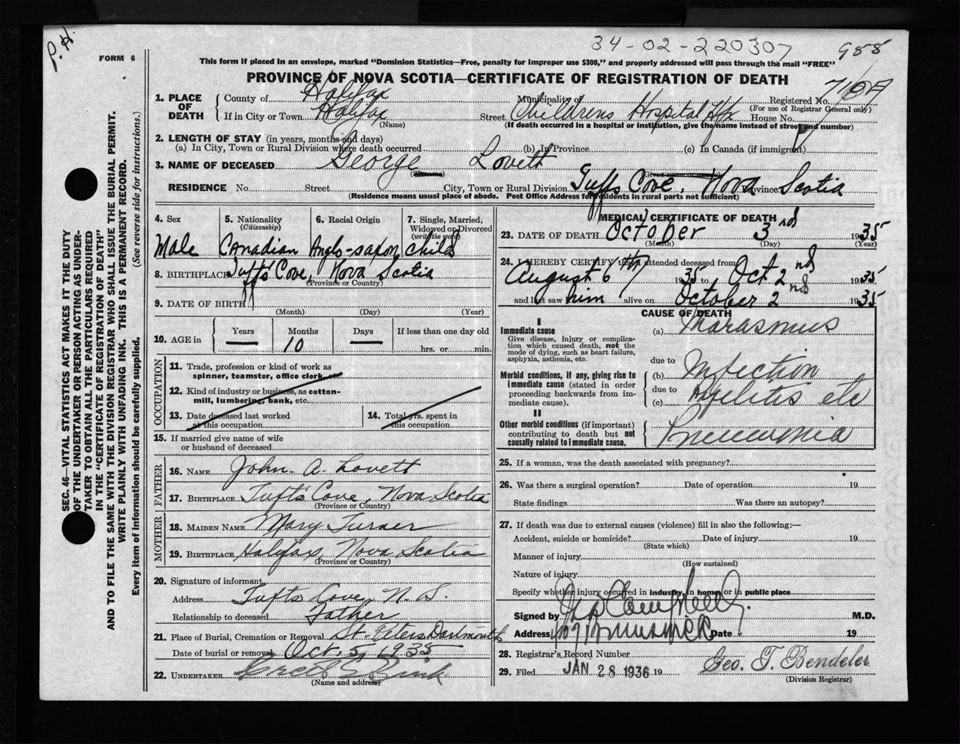 P.H.
34-02-220307
955
FORM 6
This form if placed in an envelope, marked "Dominion Statistics—Free, penalty for improper use $300," and properly addressed will pass through the mail "FREE"
PROVINCE OF NOVA SCOTIA—CERTIFICATE OF REGISTRATION OF DEATH
1. PLACE OF DEATH
County of Halifax Municipality of Registered No.
(For use of Registrar General only)
If in City or Town Halifax Street Childrens Hospital Hfx House No.
(Name) (If death occurred in a hospital or institution, give the name instead of street and number)
2. LENGTH OF STAY (in years, months and days)
(a) In City, Town or Rural Division where death occurred (b) In Province (c) In Canada (if immigrant)
3. NAME OF DECEASED George Lovett
RESIDENCE No. Street City, Town or Rural Division Tuffs Cove, Nova Province Scotia
(Residence means usual place of abode. Post Office Address for residents in rural parts not sufficient)
4. Sex
Male
5. Nationality
(Citizenship)
Canadian
6. Racial Origin
Anglo-saxon
7. Single, Married, Widowed or Divorced
(write the word)
child
8. BIRTHPLACE Tufts Cove, Nova Scotia
(Province or Country)
9. DATE OF BIRTH
(Month) (Day) (Year)
10. AGE in
Years Months Days If less than one day old
— 10 — hrs. or min.
OCCUPATION
11. Trade, profession or kind of work as spinner, teamster, office clerk, etc.
12. Kind of industry or business, as cotton-mill, lumbering, bank, etc.
13. Date deceased last worked at this occupation
14. Total yrs. spent in this occupation
15. If married give name of wife or husband of deceased
FATHER
16. NAME John. A. Lovett
17. BIRTHPLACE Tufts Cove, Nova Scotia
(Province or Country)
MOTHER
18. MAIDEN NAME Mary Turner
19. BIRTHPLACE Halifax, Nova Scotia
(Province or Country)
20. Signature of informant
Address Tufts Cove, N.S.
Relationship to deceased Father
21. Place of Burial, Cremation or Removal St. Peters Dartmouth
Date of burial or removal Oct. 3, 1935
22. UNDERTAKER
(Name and address)
MEDICAL CERTIFICATE OF DEATH
23. DATE OF DEATH October 3rd 1935
(Month) (Day) (Year)
24. I HEREBY CERTIFY that I attended deceased from
August 6th 1935 to Oct 2nd 1935
and last saw him alive on October 2nd 1935
CAUSE OF DEATH
I
Immediate cause
Give disease, injury or complication which caused death, not the mode of dying, such as heart failure, asphyxia, asthenia, etc.
(a) Marasmus
due to
Morbid conditions, if any, giving rise to immediate cause (stated in order proceeding backwards from immediate cause).
(b) Infection
due to
(c) Pyelitis etc
II
Other morbid conditions (if important) contributing to death but not causally related to immediate cause.
Pneumonia
25. If a woman, was the death associated with pregnancy?
26. Was there a surgical operation? Date of operation 19
State findings Was there an autopsy?
27. If death was due to external causes (violence) fill in also the following:—
Accident, suicide or homicide? Date of injury 19
(State which)
Manner of injury
(How sustained)
Nature of injury
Specify whether injury occurred in industry, in home, or in public place
Signed by M.D.
Address Date 19
28. Registrar's Record Number
29. Filed JAN 28 1936 19 Geo. T. Bendeler
(Division Registrar)
SEC. 46—VITAL STATISTICS ACT MAKES IT THE DUTY
OF THE UNDERTAKER OR PERSON ACTING AS UNDER-
TAKER TO OBTAIN ALL THE PARTICULARS REQUIRED
IN THE "CERTIFICATE OF REGISTRATION OF DEATH"
AND TO FILE THE SAME WITH THE DIVISION REGISTRAR WHO SHALL ISSUE THE BURIAL PERMIT.
WRITE PLAINLY WITH UNFADING INK. THIS IS A PERMANENT RECORD.
Every item of information should be carefully supplied. (See reverse side for instructions.)